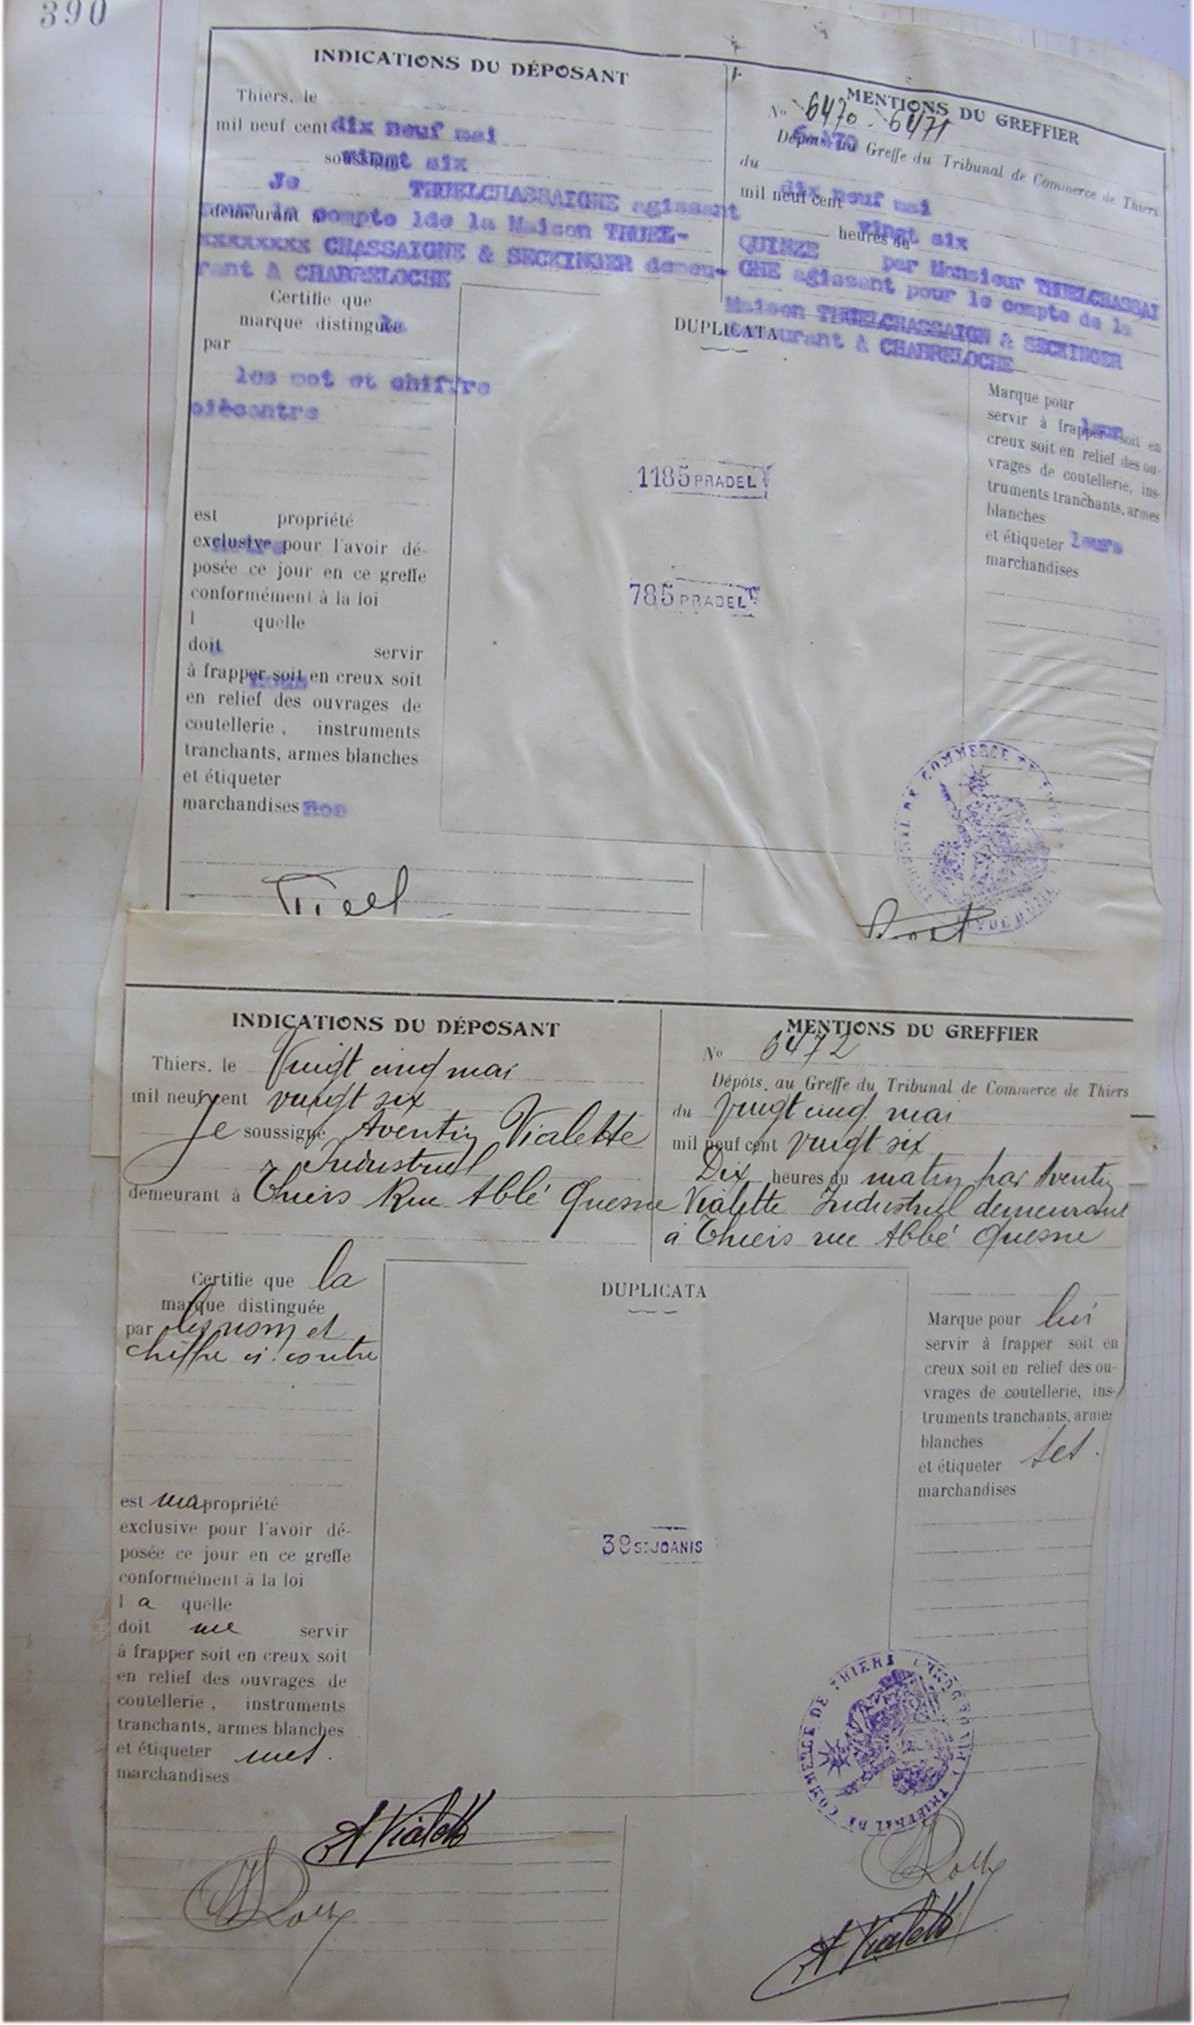 390
INDICATIONS DU DÉPOSANT
Thiers, le
mil neuf cent dix neuf mai
soussigné vingt six
Je THUELCHASSAIGNE agissant
demeurant à pour le compte 1de la Maison THUEL-
xxxxxxxx CHASSAIGNE & SECKINGER demeu-
rant à CHABRELOCHE
Certifie que
marque distinguée la
par
les mot et chiffre
ciècontre
est propriété
exclusive pour l'avoir dé-
posée ce jour en ce greffe
conformément à la loi
l quelle
doit servir
à frapper soit en creux soit
en relief des ouvrages de
coutellerie, instruments
tranchants, armes blanches
et étiqueter
marchandises nos
MENTIONS DU GREFFIER
No 6470 - 6471
6470
Dépôts au Greffe du Tribunal de Commerce de Thiers
du dix neuf mai
mil neuf cent vingt six
QUINZE heures du par Monsieur THUELCHASSAI
GNE agissant pour le compte de la
Maison THUELCHASSAIGN & SECKINGER
demeurant à CHABRELOCHE
DUPLICATA
1185 PRADEL
785 PRADEL
Marque pour
servir à frapper leur soit en
creux soit en relief des ou-
vrages de coutellerie, ins-
truments tranchants, armes
blanches
et étiqueter leurs
marchandises
INDICATIONS DU DÉPOSANT
Thiers, le Vingt cinq mai
mil neuf cent vingt six
Je soussigné Aventin Vialette
Industriel
demeurant à Thiers Rue Abbé Quesne
Certifie que la
marque distinguée
par les nom et
chiffre ci-contre
est ma propriété
exclusive pour l'avoir dé-
posée ce jour en ce greffe
conformément à la loi
l a quelle
doit me servir
à frapper soit en creux soit
en relief des ouvrages de
coutellerie, instruments
tranchants, armes blanches
et étiqueter mes
marchandises
A Vialette
MENTIONS DU GREFFIER
No 6472
Dépôts au Greffe du Tribunal de Commerce de Thiers
du Vingt cinq mai
mil neuf cent vingt six
Dix heures du matin par Aventin
Vialette Industriel demeurant
à Thiers rue Abbé Quesne
DUPLICATA
38 ST JOANIS
Marque pour lui
servir à frapper soit en
creux soit en relief des ou-
vrages de coutellerie, ins-
truments tranchants, armes
blanches
et étiqueter ses
marchandises
TRIBUNAL DE COMMERCE DE THIERS
A Vialette